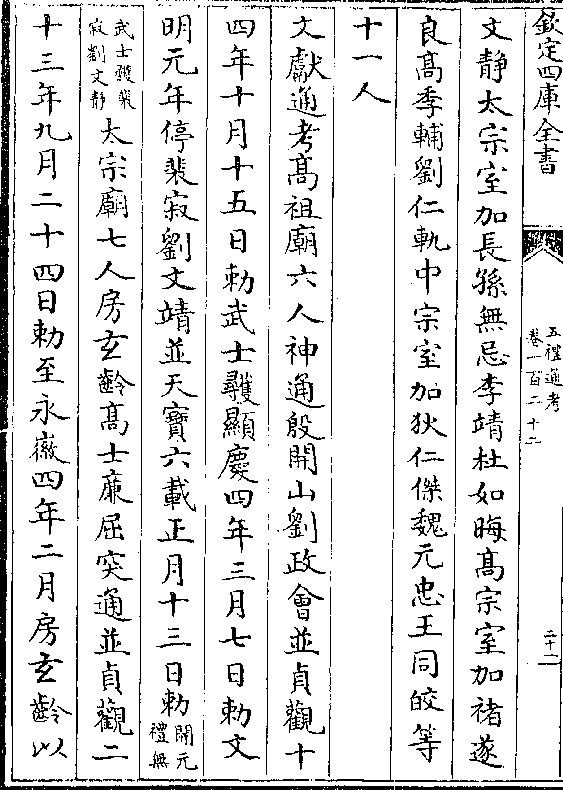 欽定四庫全書
五禮通考
卷一百二十二
二十一
文靜太宗室加長孫無忌李靖杜如晦髙宗室加褚遂
良髙季輔劉仁軌中宗室加狄仁傑魏元忠王同皎等
十一人
文獻通考髙祖廟六人神通殷開山劉政會並貞觀十
四年十月十五日勅武士彠顯慶四年三月七日勅文
明元年停裴寂劉文靖並天寳六載正月十三日勅開元禮無
武士彠裴寂劉文靜太宗廟七人房玄齡髙士廉屈突通並貞觀二
十三年九月二十四日勅至永徽四年二月房玄齡以